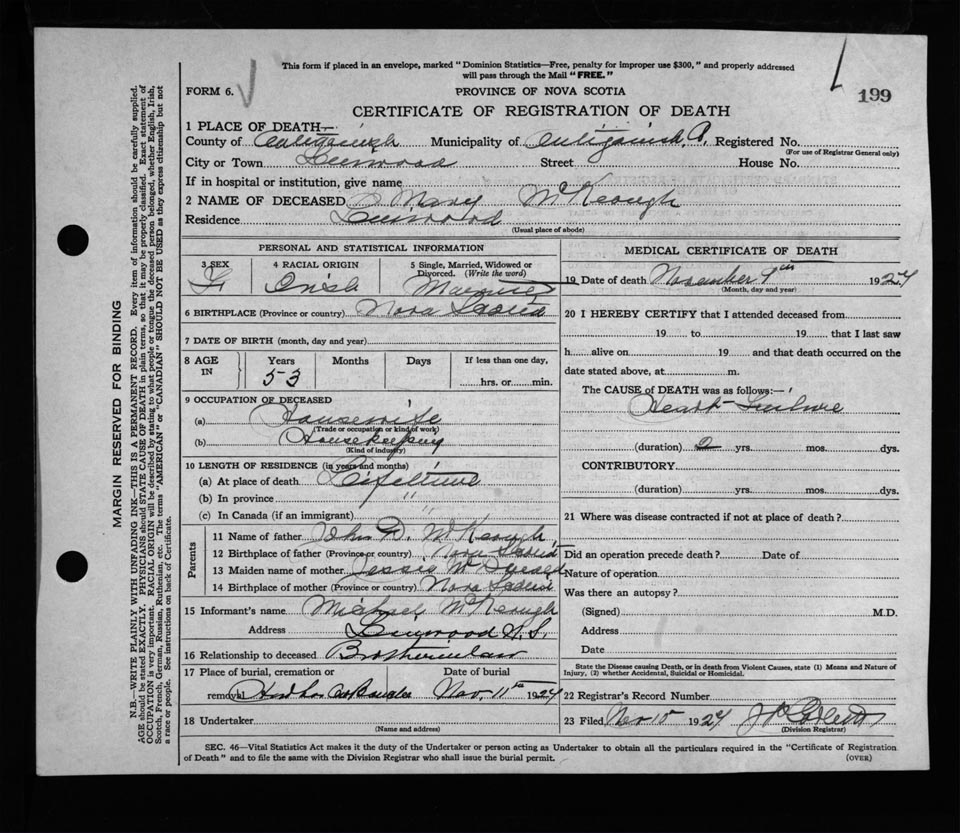 This form if placed in an envelope, marked "Dominion Statistics—Free, penalty for improper use $300," and properly addressed
will pass through the Mail "FREE."
FORM 6.
PROVINCE OF NOVA SCOTIA
199
CERTIFICATE OF REGISTRATION OF DEATH
1 PLACE OF DEATH—
County of Antigonish Municipality of Antigonish Registered No.
(For use of Registrar General only)
City or Town Linwood Street House No.
If in hospital or institution, give name
2 NAME OF DECEASED Mary McKeough
Residence Linwood
(Usual place of abode)
PERSONAL AND STATISTICAL INFORMATION
3 SEX F
4 RACIAL ORIGIN Irish
5 Single, Married, Widowed or Divorced. (Write the word) Married
6 BIRTHPLACE (Province or country) Nova Scotia
7 DATE OF BIRTH (month, day and year)
8 AGE IN Years 53 Months Days If less than one day, hrs. or min.
9 OCCUPATION OF DECEASED
(a) Housewife
(Trade or occupation or kind of work)
(b) Housekeeping
(Kind of industry)
10 LENGTH OF RESIDENCE (in years and months)
(a) At place of death Lifetime
(b) In province "
(c) In Canada (if an immigrant) "
Parents
11 Name of father John D. McKeough
12 Birthplace of father (Province or country) Nova Scotia
13 Maiden name of mother Jessie
14 Birthplace of mother (Province or country) Nova Scotia
15 Informant's name Michael McKeough
Address Linwood N.S.
16 Relationship to deceased Brotherinlaw
17 Place of burial, cremation or removal
Date of burial Nov. 11th 1924
18 Undertaker
(Name and address)
MEDICAL CERTIFICATE OF DEATH
19 Date of death November 9th 1924
(Month, day and year)
20 I HEREBY CERTIFY that I attended deceased from
19 to 19 , that I last saw
h alive on 19 and that death occurred on the
date stated above, at m.
The CAUSE OF DEATH was as follows:—
Heart Failure
(duration) 2 yrs. mos. dys.
CONTRIBUTORY
(duration) yrs. mos. dys.
21 Where was disease contracted if not at place of death?
Did an operation precede death? Date of
Nature of operation
Was there an autopsy?
(Signed) M.D.
Address
Date
State the Disease causing Death, or in death from Violent Causes, state (1) Means and Nature of
Injury, (2) whether Accidental, Suicidal or Homicidal.
22 Registrar's Record Number
23 Filed Nov 10 1924
(Division Registrar)
SEC. 46—Vital Statistics Act makes it the duty of the Undertaker or person acting as Undertaker to obtain all the particulars required in the "Certificate of Registration
of Death" and to file the same with the Division Registrar who shall issue the burial permit.
(OVER)
MARGIN RESERVED FOR BINDING
N.B.—WRITE PLAINLY WITH UNFADING INK—THIS IS A PERMANENT RECORD. Every item of information should be carefully supplied.
AGE should be stated EXACTLY. PHYSICIANS should STATE CAUSE OF DEATH in plain terms, so that it may be properly classified. Exact statement of
OCCUPATION is very important. RACIAL ORIGIN will be described by stating to what people or tongue the deceased person belonged, whether English, Irish,
Scotch, French, German, Russian, Ruthenian, etc. The terms "AMERICAN" or "CANADIAN" SHOULD NOT BE USED as they express citizenship but not
a race or people. See instructions on back of Certificate.